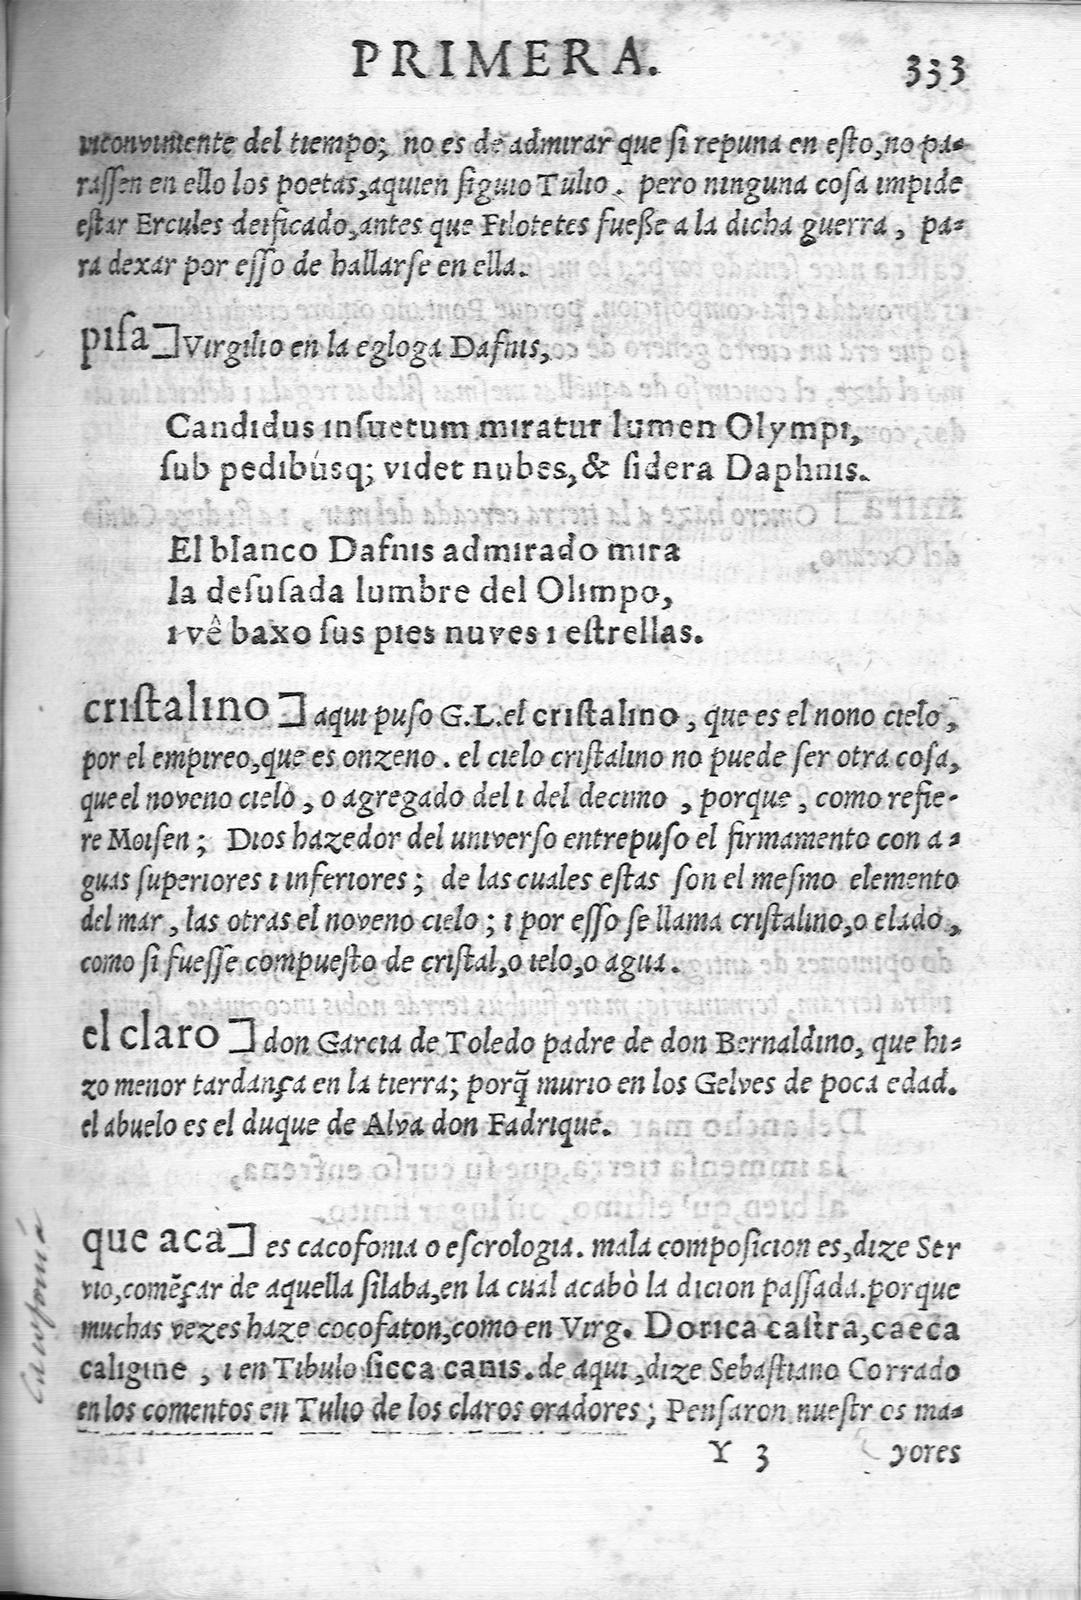 PRIMERA. 333
inconviniente del tiempo; no es de admirar que si repuna en esto, no pa-
rassen en ello los poetas, aquien siguio Tulio. pero ninguna cosa impide
estar Ercules deificado, antes que Filotetes fuesse a la dicha guerra, pa-
ra dexar por esso de hallarse en ella.
pisa] Virgilio en la egloga Dafnis,
Candidus insuetum miratur lumen Olympi,
sub pedibúsq; videt nubes, & sidera Daphnis.
El blanco Dafnis admirado mira
la desusada lumbre del Olimpo,
i vê baxo sus pies nuves i estrellas.
cristalino] aqui puso G.L. el cristalino, que es el nono cielo,
por el empireo, que es onzeno. el cielo cristalino no puede ser otra cosa,
que el noveno cielo, o agregado del i del decimo, porque, como refie-
re Moisen; Dios hazedor del universo entrepuso el firmamento con a-
guas superiores i inferiores; de las cuales estas son el mesmo elemento
del mar, las otras el noveno cielo; i por esso se llama cristalino, o elado,
como si fuesse compuesto de cristal, o ielo, o agua.
el claro] don Garcia de Toledo padre de don Bernaldino, que hi-
zo menor tardança en la tierra; porq̃ murio en los Gelves de poca edad.
el abuelo es el duque de Alva don Fadrique.
que aca] es cacofonia o escrologia. mala composicion es, dize Ser
vio, comẽçar de aquella silaba, en la cual acabò la dicion passada. porque
muchas vezes haze cocofaton, como en Virg. Dorica castra, caeca
caligine, i en Tibulo sicca canis. de aqui, dize Sebastiano Corrado
en los comentos en Tulio de los claros oradores; Pensaron nuestros ma-
Y 3 yores